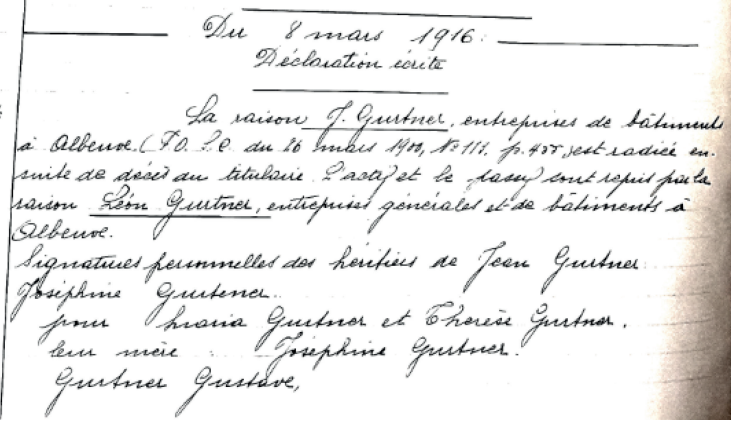 Du 8 mars 1916.
Déclaration écrite
La raison J. Gurtner, entreprises de bâtiments
à Albeuve. (F. O. S. C. du 26 mars 1900, No 111, p. 455), est radiée en-
suite de décès du titulaire. L'actif et le passif sont repris par la
raison Léon Gurtner, entreprises générales et de bâtiments à
Albeuve.
Signatures personnelles des héritiers de Jean Gurtner
Joséphine Gurtener.
pour Maria Gurtner et Thérèse Gurtner.
leur mère : Joséphine Gurtner.
Gurtner Gustave,